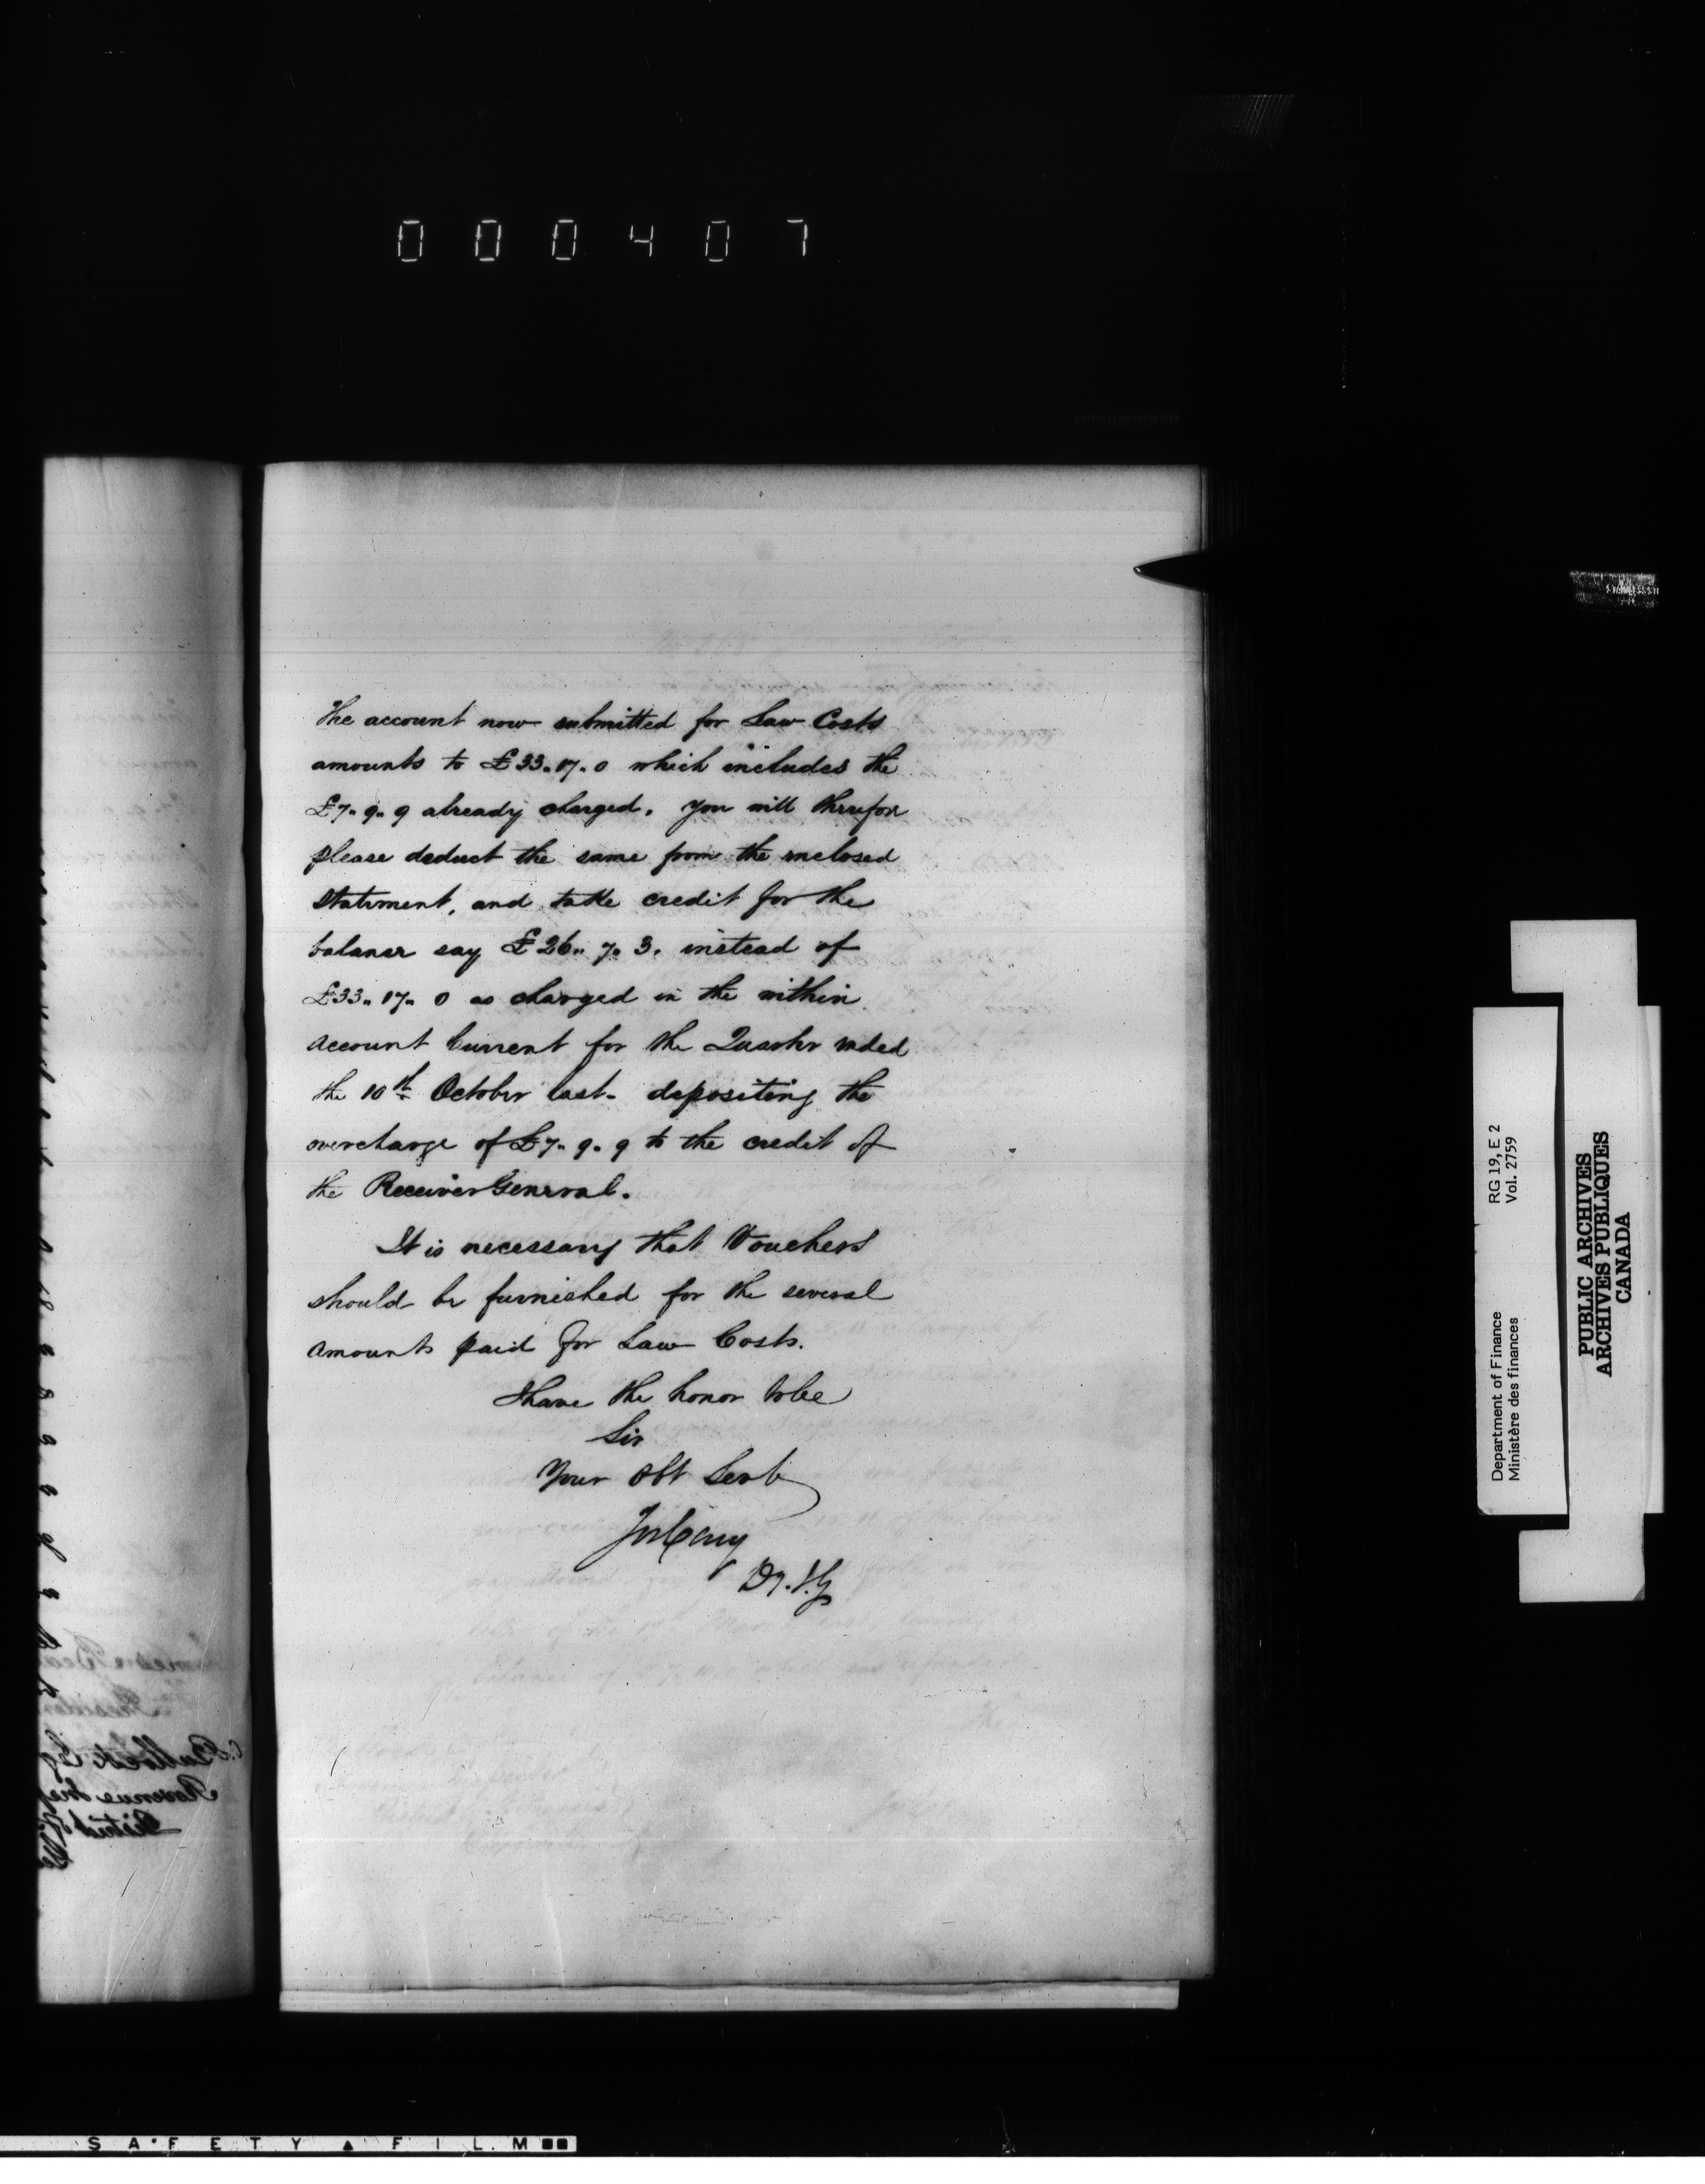 000407
The account now submitted for Law Costs
amounts to £33.17.0 which includes the
£7.9.9 already charged. you will therefor
please deduct the same from the inclosed
Statement, and take credit for the
balance say £26.7.3. instead of
£33.17.0 as charged in the within
account Current for the Quarter ended
the 10th October last. depositing the
overcharge of £7.9.9 to the credit of
the Receiver General.
It is necessary that Vouchers
should be furnished for the several
amounts paid for Law Costs.
I have the honor to be
Sir
Your Obt Servt
Jos Cary
Dy. I. G
RG 19, E 2
Vol. 2759
Department of Finance
Ministère des finances
PUBLIC ARCHIVES
ARCHIVES PUBLIQUES
CANADA
SAFETY FILM